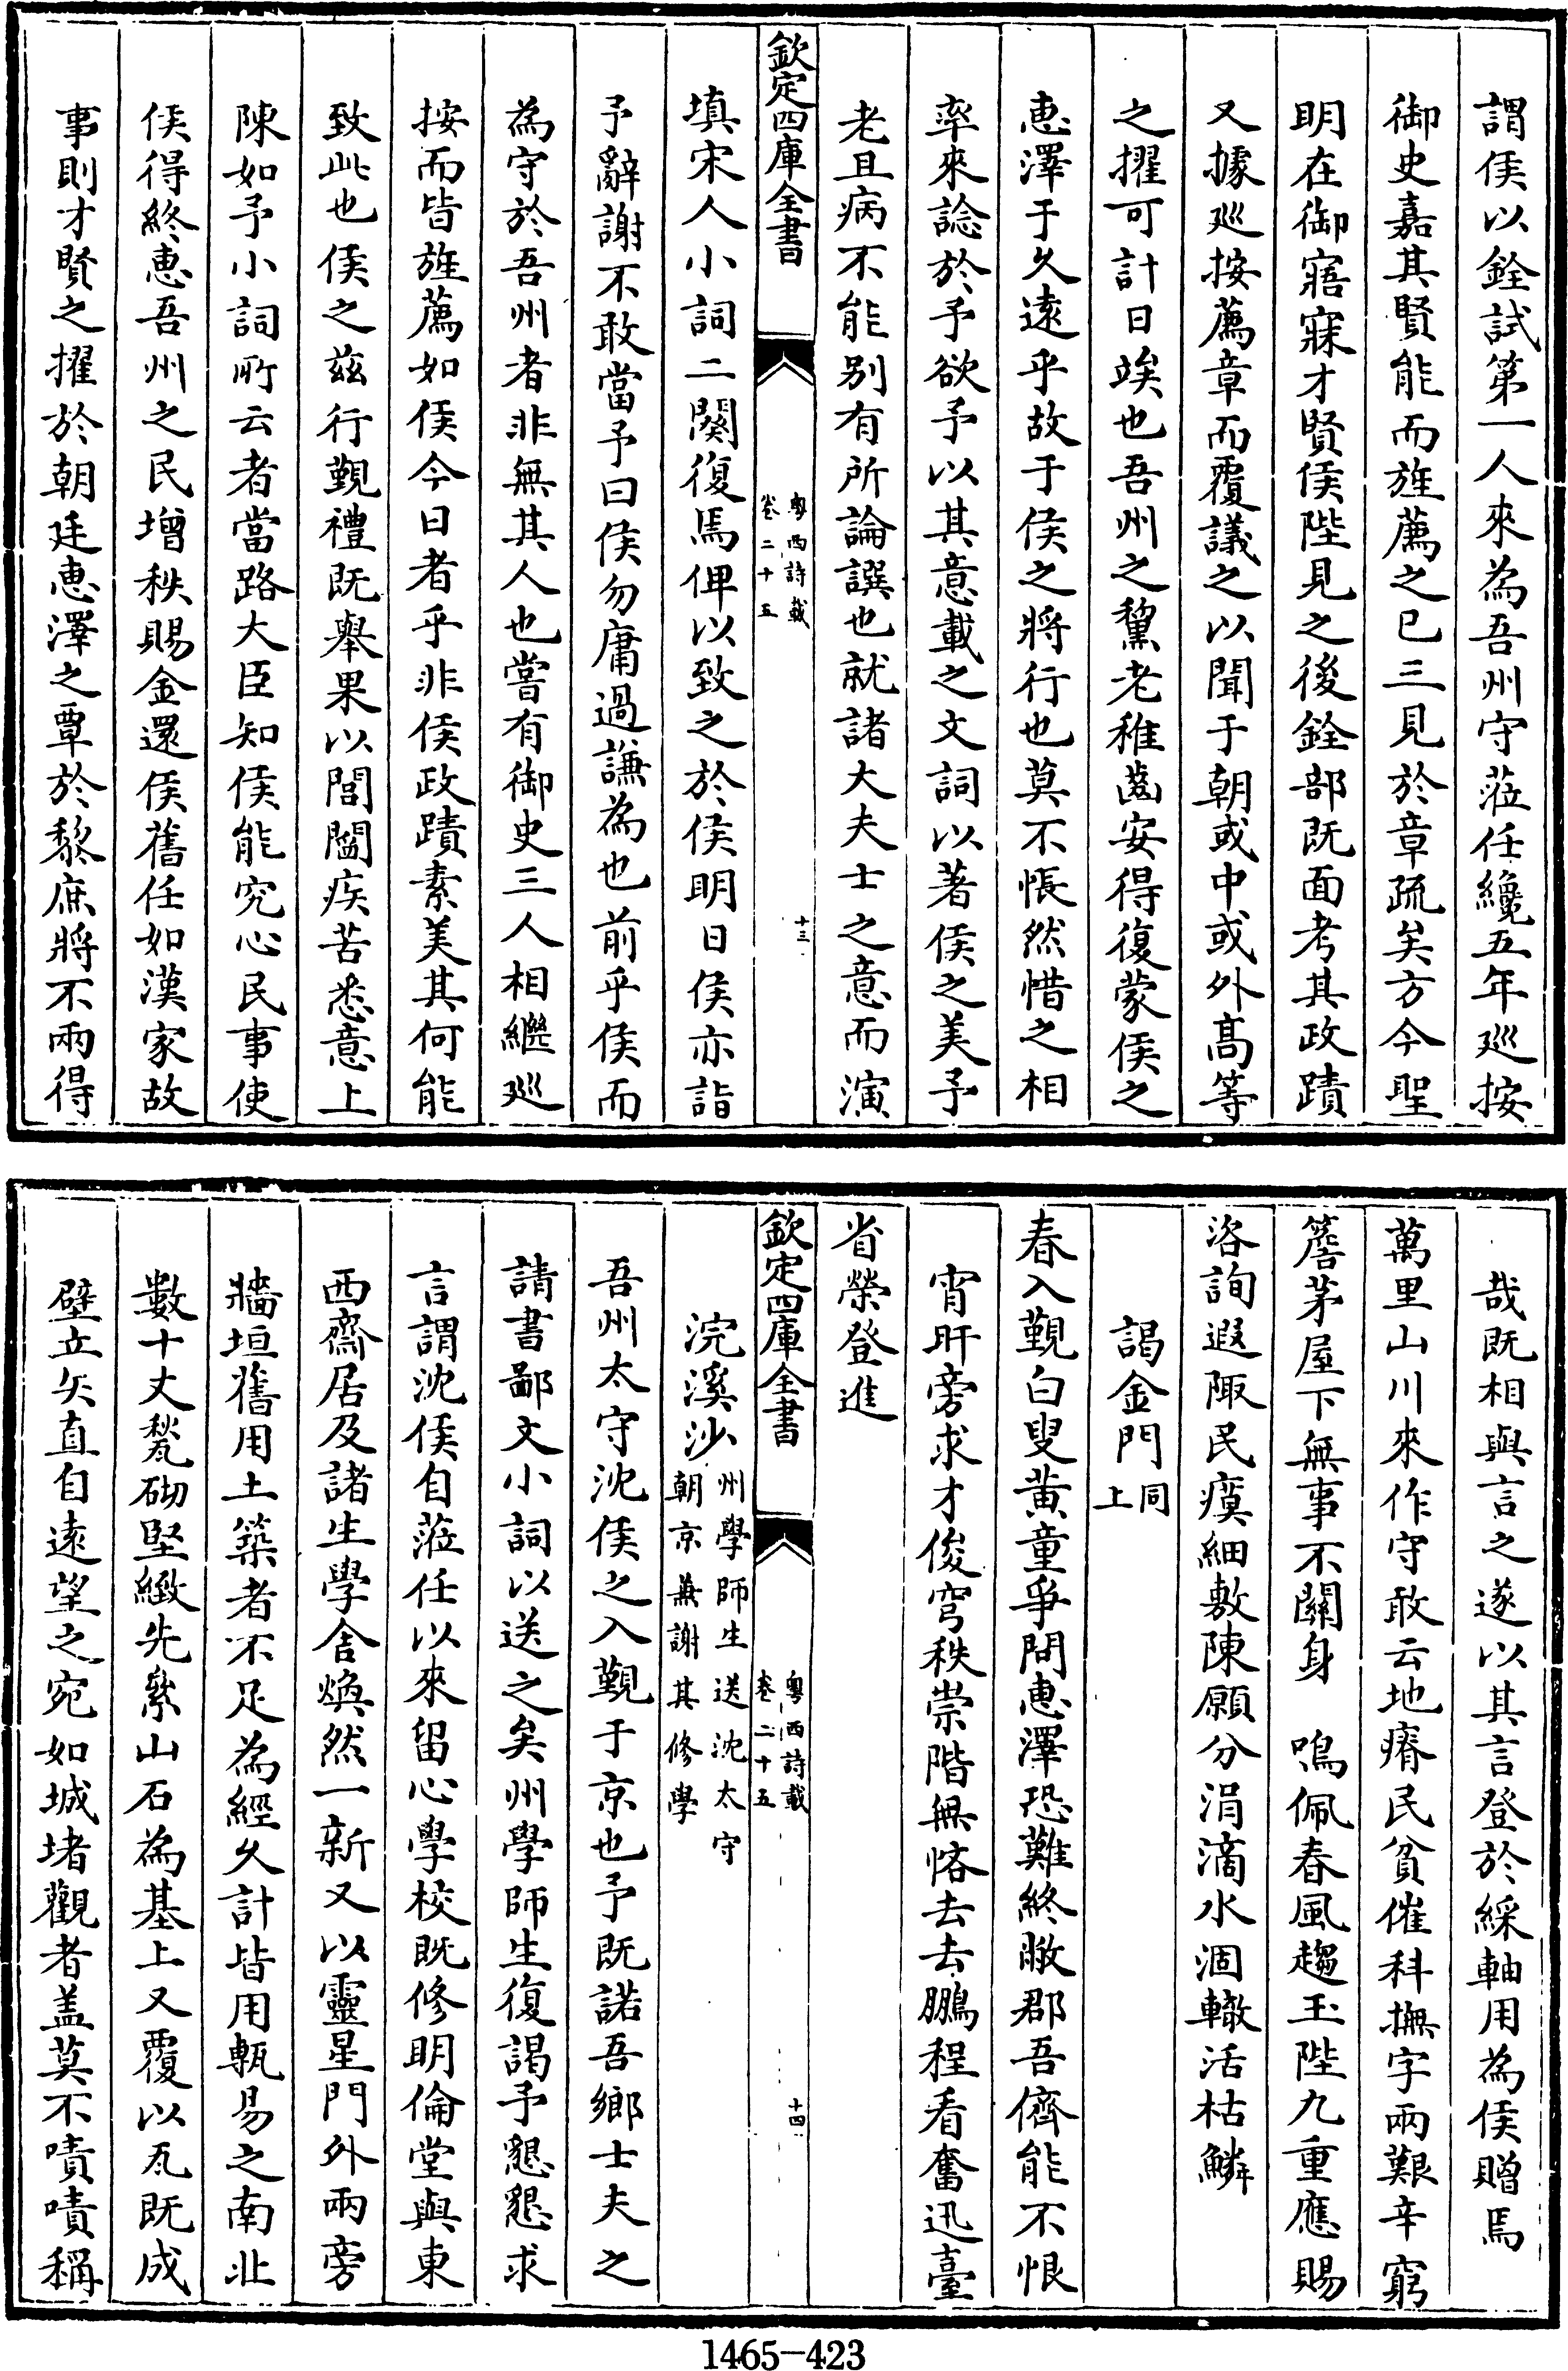 謂侯以銓試第一人來為吾州守蒞任纔五年廵按
御史嘉其賢能而旌薦之已三見於章疏矣方今聖
明在御寤寐才賢侯陛見之後銓部既面考其政蹟
又據廵按薦章而覆議之以聞于朝或中或外髙等
之擢可計日竢也吾州之黧老稚齒安得復蒙侯之
惠澤于久遠乎故于侯之將行也莫不悵然惜之相
率來諗於予欲予以其意載之文詞以著侯之美予
老且病不能别有所論譔也就諸大夫士之意而演
欽定四庫全書
粤西詩載
卷二十五
十三
填宋人小詞二闋復馬俾以致之於侯明日侯亦詣
予辭謝不敢當予曰侯勿庸過謙為也前乎侯而
為守於吾州者非無其人也嘗有御史三人相繼廵
按而皆旌薦如侯今日者乎非侯政蹟素美其何能
致此也侯之兹行覲禮既舉果以閭閻疾苦悉意上
陳如予小詞所云者當路大臣知侯能究心民事使
侯得終惠吾州之民增秩賜金還侯舊任如漢家故
事則才賢之擢於朝廷惠澤之覃於黎庶將不兩得
哉既相與言之遂以其言登於綵軸用為侯贈焉
萬里山川來作守敢云地瘠民貧催科撫字兩艱辛窮
簷茅屋下無事不關身　鳴佩春風趨玉陛九重應賜
洛詢遐陬民瘼細敷陳願分涓滴水涸轍活枯鱗
謁金門同上
春入覲白叟黄童爭問惠澤恐難終敝郡吾儕能不恨
宵旰旁求才俊穹秩崇階無悋去去鵬程看奮迅臺
省榮登進
欽定四庫全書
粤西詩載
卷二十五
十四
浣溪沙州學師生送沈太守
朝京兼謝其修學
吾州太守沈侯之入覲于京也予既諾吾鄉士夫之
請書鄙文小詞以送之矣州學師生復謁予懇懇求
言謂沈侯自蒞任以來留心學校既修明倫堂與東
西齋居及諸生學舍煥然一新又以靈星門外兩旁
牆垣舊用土築者不足為經久計皆用甎易之南北
數十丈甃砌堅緻先絫山石為基上又覆以瓦既成
壁立矢直自遠望之宛如城堵觀者盖莫不嘖嘖稱
1465-423